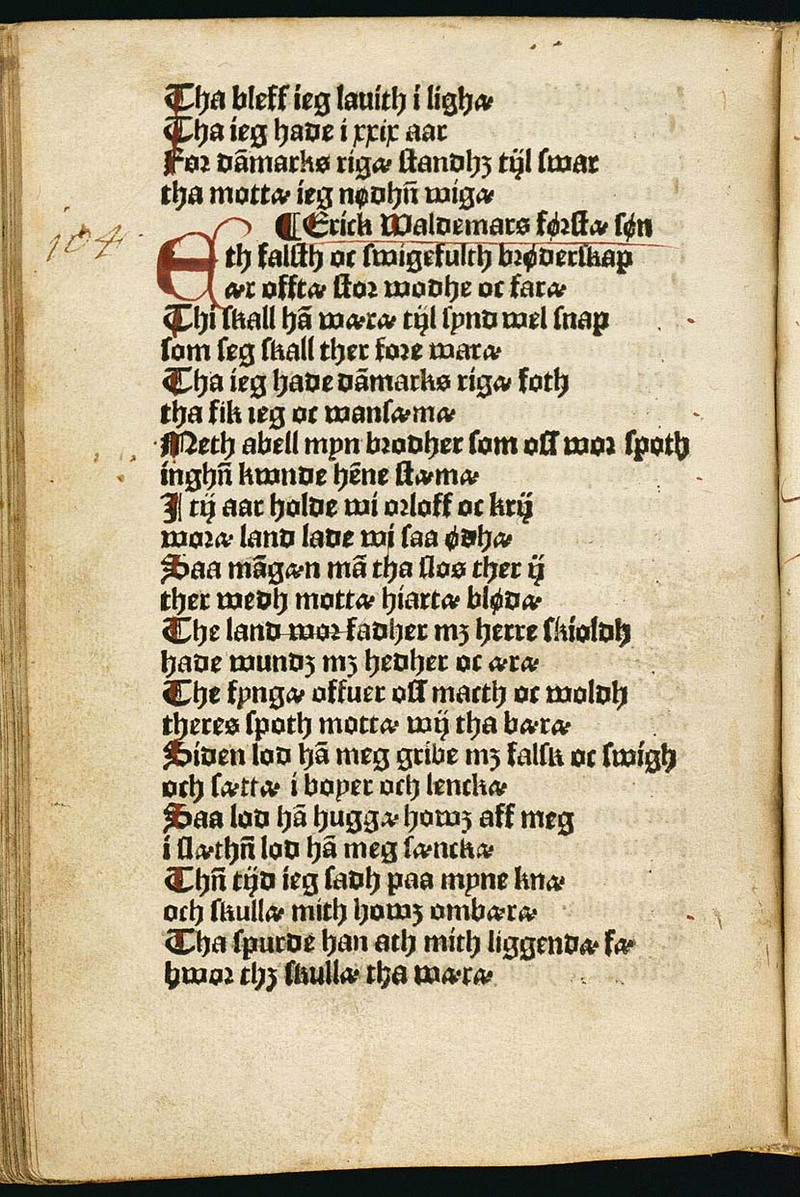 Tha bleff ieg lauith i lighæ
Tha ieg hade i xxix aar
For dāmarks rigæ standhꝫ tijl swar
tha mottæ ieg nødhn̄ wigæ
¶Erick Waldemars førstæ søn
104
Eth falsth oc swigefulth brøderskap
ær offtæ stor wodhe oc faræ
Thi skall hā wæræ tijl synd wel snap
som seg skall ther fore waræ
Tha ieg hade dāmarks rigæ foth
tha fik ieg oc wansæmæ
Meth abell myn brodher som oss wor spoth
inghn̄ kwnde hēne stæmæ
I tij aar holde wi orloff oc krij
woræ land lade wi saa ødhæ
Saa māgæn mā tha slos ther ij
ther wedh mottæ hiartæ blødæ
The land wor fadher mꝫ herre skioldh
hade wundꝫ mꝫ hedher oc æræ
The fyngæ offuer oss macth oc woldh
theres spoth mottæ wij tha bæræ
Siden lod hā meg gribe mꝫ falsk oc swigh
och sættæ i boyer och lenckæ
Saa lod hā huggæ howꝫ aff meg
i slæthn̄ lod hā meg sænckæ
Thn̄ tijd ieg sadh paa myne knæ
och skullæ mith howꝫ ombæræ
Tha spurde han ath mith liggendæ fæ
hwor thꝫ skullæ tha wæræ